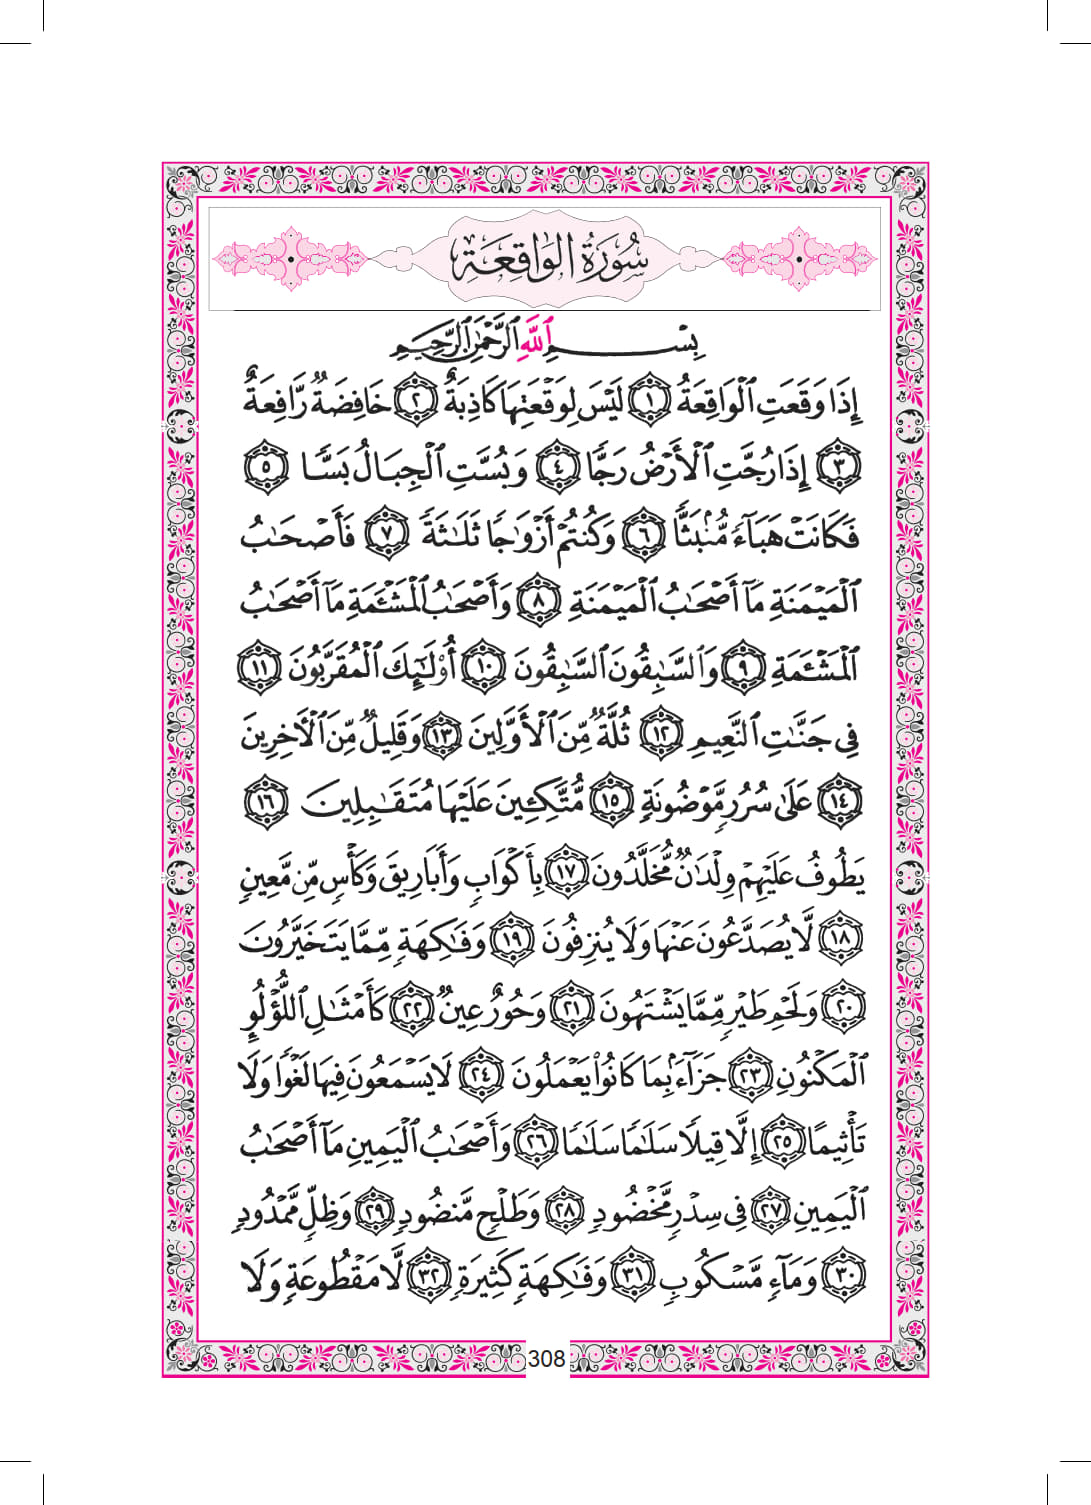 سُورَةُ الوَاقِعَةِ
بِسْمِ ٱللَّهِ ٱلرَّحْمَٰنِ ٱلرَّحِيمِ
إِذَا وَقَعَتِ ٱلْوَاقِعَةُ ١ لَيْسَ لِوَقْعَتِهَا كَاذِبَةٌ ٢ خَافِضَةٌ رَّافِعَةٌ
٣ إِذَا رُجَّتِ ٱلْأَرْضُ رَجًّا ٤ وَبُسَّتِ ٱلْجِبَالُ بَسًّا ٥
فَكَانَتْ هَبَآءً مُّنۢبَثًّا ٦ وَكُنتُمْ أَزْوَٰجًا ثَلَٰثَةً ٧ فَأَصْحَٰبُ
ٱلْمَيْمَنَةِ مَآ أَصْحَٰبُ ٱلْمَيْمَنَةِ ٨ وَأَصْحَٰبُ ٱلْمَشْـَٔمَةِ مَآ أَصْحَٰبُ
ٱلْمَشْـَٔمَةِ ٩ وَٱلسَّٰبِقُونَ ٱلسَّٰبِقُونَ ١٠ أُو۟لَٰٓئِكَ ٱلْمُقَرَّبُونَ ١١
فِى جَنَّٰتِ ٱلنَّعِيمِ ١٢ ثُلَّةٌ مِّنَ ٱلْأَوَّلِينَ ١٣ وَقَلِيلٌ مِّنَ ٱلْءَاخِرِينَ
١٤ عَلَىٰ سُرُرٍ مَّوْضُونَةٍ ١٥ مُّتَّكِـِٔينَ عَلَيْهَا مُتَقَٰبِلِينَ ١٦
يَطُوفُ عَلَيْهِمْ وِلْدَٰنٌ مُّخَلَّدُونَ ١٧ بِأَكْوَابٍ وَأَبَارِيقَ وَكَأْسٍ مِّن مَّعِينٍ
١٨ لَّا يُصَدَّعُونَ عَنْهَا وَلَا يُنزِفُونَ ١٩ وَفَٰكِهَةٍ مِّمَّا يَتَخَيَّرُونَ
٢٠ وَلَحْمِ طَيْرٍ مِّمَّا يَشْتَهُونَ ٢١ وَحُورٌ عِينٌ ٢٢ كَأَمْثَٰلِ ٱللُّؤْلُؤِ
ٱلْمَكْنُونِ ٢٣ جَزَآءًۢ بِمَا كَانُوا۟ يَعْمَلُونَ ٢٤ لَا يَسْمَعُونَ فِيهَا لَغْوًا وَلَا
تَأْثِيمًا ٢٥ إِلَّا قِيلًا سَلَٰمًا سَلَٰمًا ٢٦ وَأَصْحَٰبُ ٱلْيَمِينِ مَآ أَصْحَٰبُ
ٱلْيَمِينِ ٢٧ فِى سِدْرٍ مَّخْضُودٍ ٢٨ وَطَلْحٍ مَّنضُودٍ ٢٩ وَظِلٍّ مَّمْدُودٍ
٣٠ وَمَآءٍ مَّسْكُوبٍ ٣١ وَفَٰكِهَةٍ كَثِيرَةٍ ٣٢ لَّا مَقْطُوعَةٍ وَلَا
308